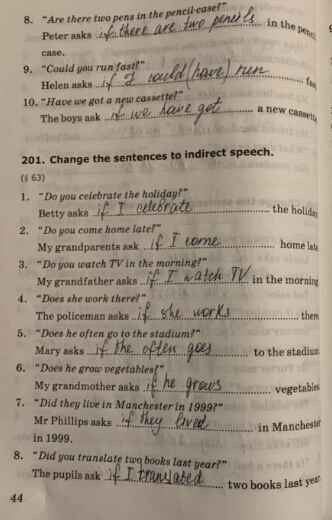 8. "Are there two pens in the pencil-case?"
Peter asks if there are two pencils in the pencil
case.
9. "Could you run fast?"
Helen asks if I could (have) run fast
10. "Have we got a new cassette?"
The boys ask if we have got a new cassette
201. Change the sentences to indirect speech.
(§ 63)
1. "Do you celebrate the holiday?"
Betty asks if I celebrate the holiday
2. "Do you come home late?"
My grandparents ask if I come home late
3. "Do you watch TV in the morning?"
My grandfather asks if I watch TV in the morning
4. "Does she work there?"
The policeman asks if she works there
5. "Does he often go to the stadium?"
Mary asks if he often goes to the stadium
6. "Does he grow vegetables?"
My grandmother asks if he grows vegetables
7. "Did they live in Manchester in 1999?"
Mr Phillips asks if they lived in Manchester
in 1999.
8. "Did you translate two books last year?"
The pupils ask if I translated two books last year
44